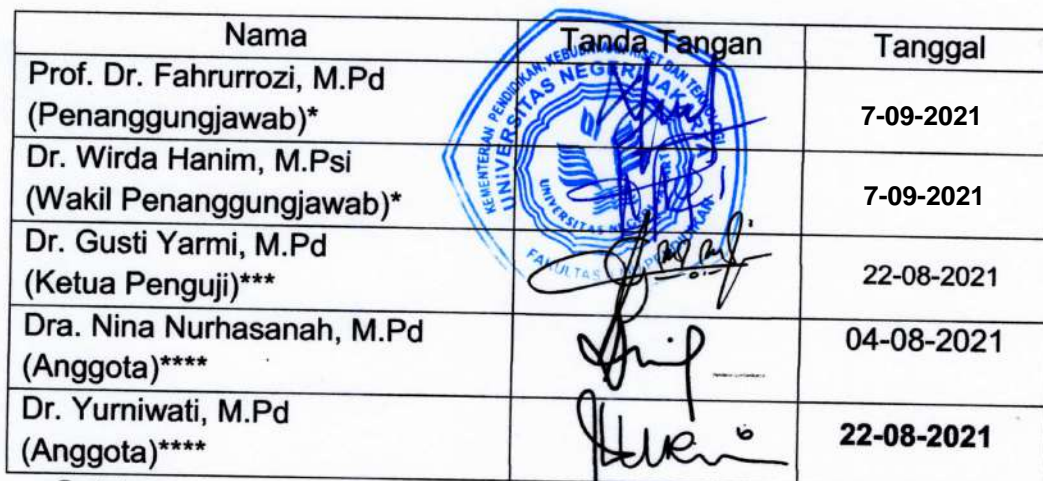 Nama Tanda Tangan Tanggal
Prof. Dr. Fahrurrozi, M.Pd
(Penanggungjawab)* 7-09-2021
Dr. Wirda Hanim, M.Psi
(Wakil Penanggungjawab)* 7-09-2021
Dr. Gusti Yarmi, M.Pd
(Ketua Penguji)*** 22-08-2021
Dra. Nina Nurhasanah, M.Pd 04-08-2021
(Anggota)****
Dr. Yurniwati, M.Pd
(Anggota)**** 22-08-2021
KEMENTERIAN PENDIDIKAN, KEBUDAYAAN, RISET DAN
UNIVERSITAS NEGERI JAKARTA
UNIVERSITAS NEGERI
FAKULTAS PENDIDIKAN